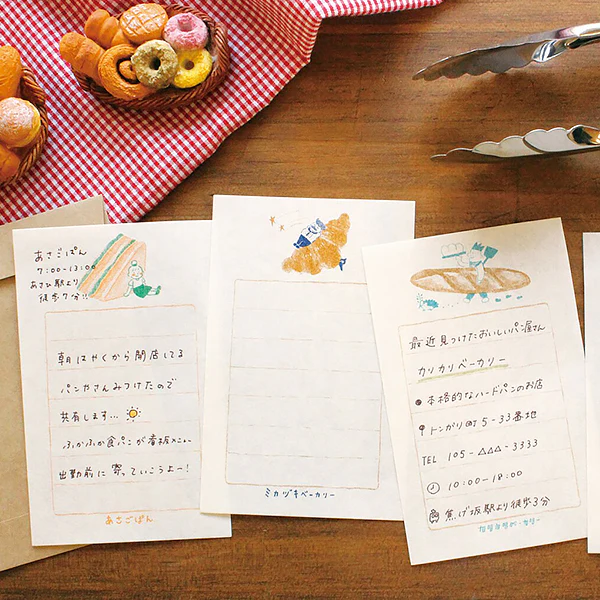 あさごぱん
7:00-13:00
あさひ駅より
徒歩7分!!
朝はやくから開店してる
パンやさんみつけたので
共有します...
ふかふか食パンが看板メニュー
出勤前に寄っていこうよー!
あさごぱん
ミカヅキベーカリー
最近見つけたおいしいパン屋さん
カリカリベーカリー
本格的なハードパンのお店
トンガリ町5-33番地
TEL 105-△△△-3333
10:00-18:00
焦げ坂駅より徒歩3分
カリカリベーカリー